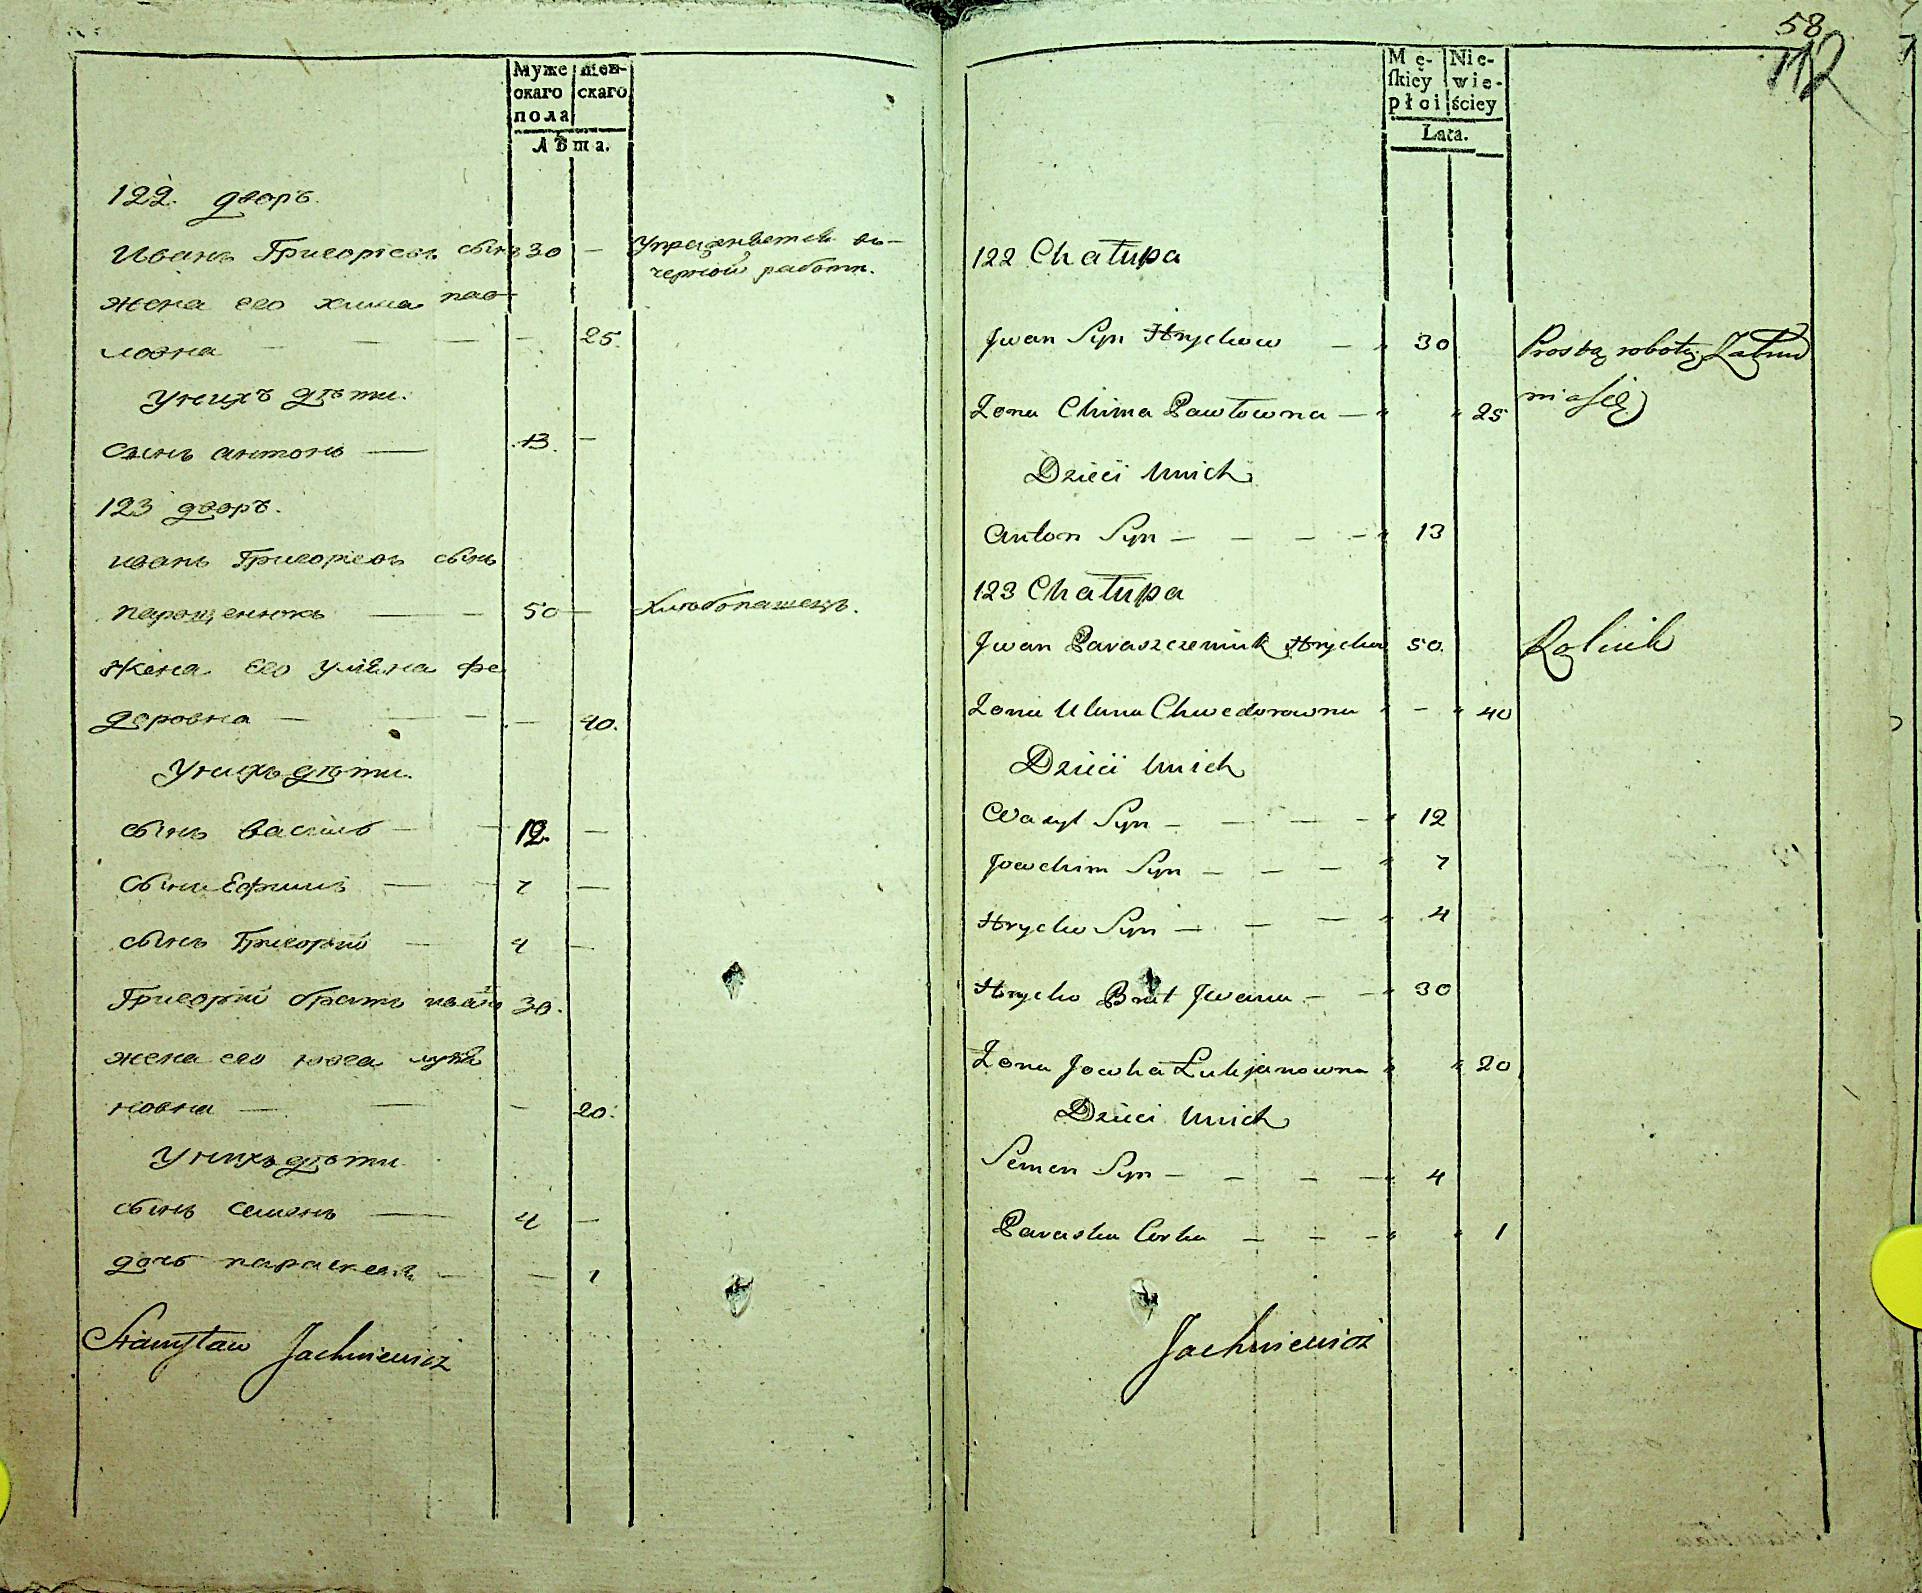 Муже
скаго
пола
женскаго
Лѣта.
122. дворъ.
Иванъ Григорїевъ сынъ 30 — Упражняется въ
черной работѣ.
жена его хима пав-
ловна — — — — 25.
У нихъ дѣти.
сынъ антонъ — 13. —
123 дворъ.
иванъ Григорїевъ сынъ
паращенюкъ — — 50 — Хлѣбопашецъ.
Жена его уляна фе
доровна — — — — 40.
У нихъ дѣти.
сынъ василь — — 12. —
сынъ Ефимъ — — 7 —
сынъ Григорій — 4 —
Григорій братъ ивана 30.
жена егоювга лукія
новна — — — 20.
У нихъ дѣти
сынъ семенъ — 4 —
дочь параскева — — 1
Stanisław Jachniewicz
58
112
Mę-
skiey
płci
Nie-
wie-
ściey
Lata.
122 Chałupa
Jwan Syn Hrychow — " 30 Prostą robotą Zatrud
nia się
Zona Chima Pawłowna — " " 25
Dzieci Unich
Anton Syn — — — — " 13
123 Chałupa
Jwan Paraszczeniuk Hrychow 50. Rolnik
Zona Ulana Chwedorowna " — " 40
Dzieci Unich
Wasyl Syn — — — — " 12
Jowchim Syn — — — " 7
Hrycko Syn — — — " 4
Hrycko Brat Jwana — — " 30
Zona Jowha Łukjanowna " " 20
Dzieci Unich
Semen Syn — — — — " 4
Paraska Corka — — — " " 1
Jachniewicz